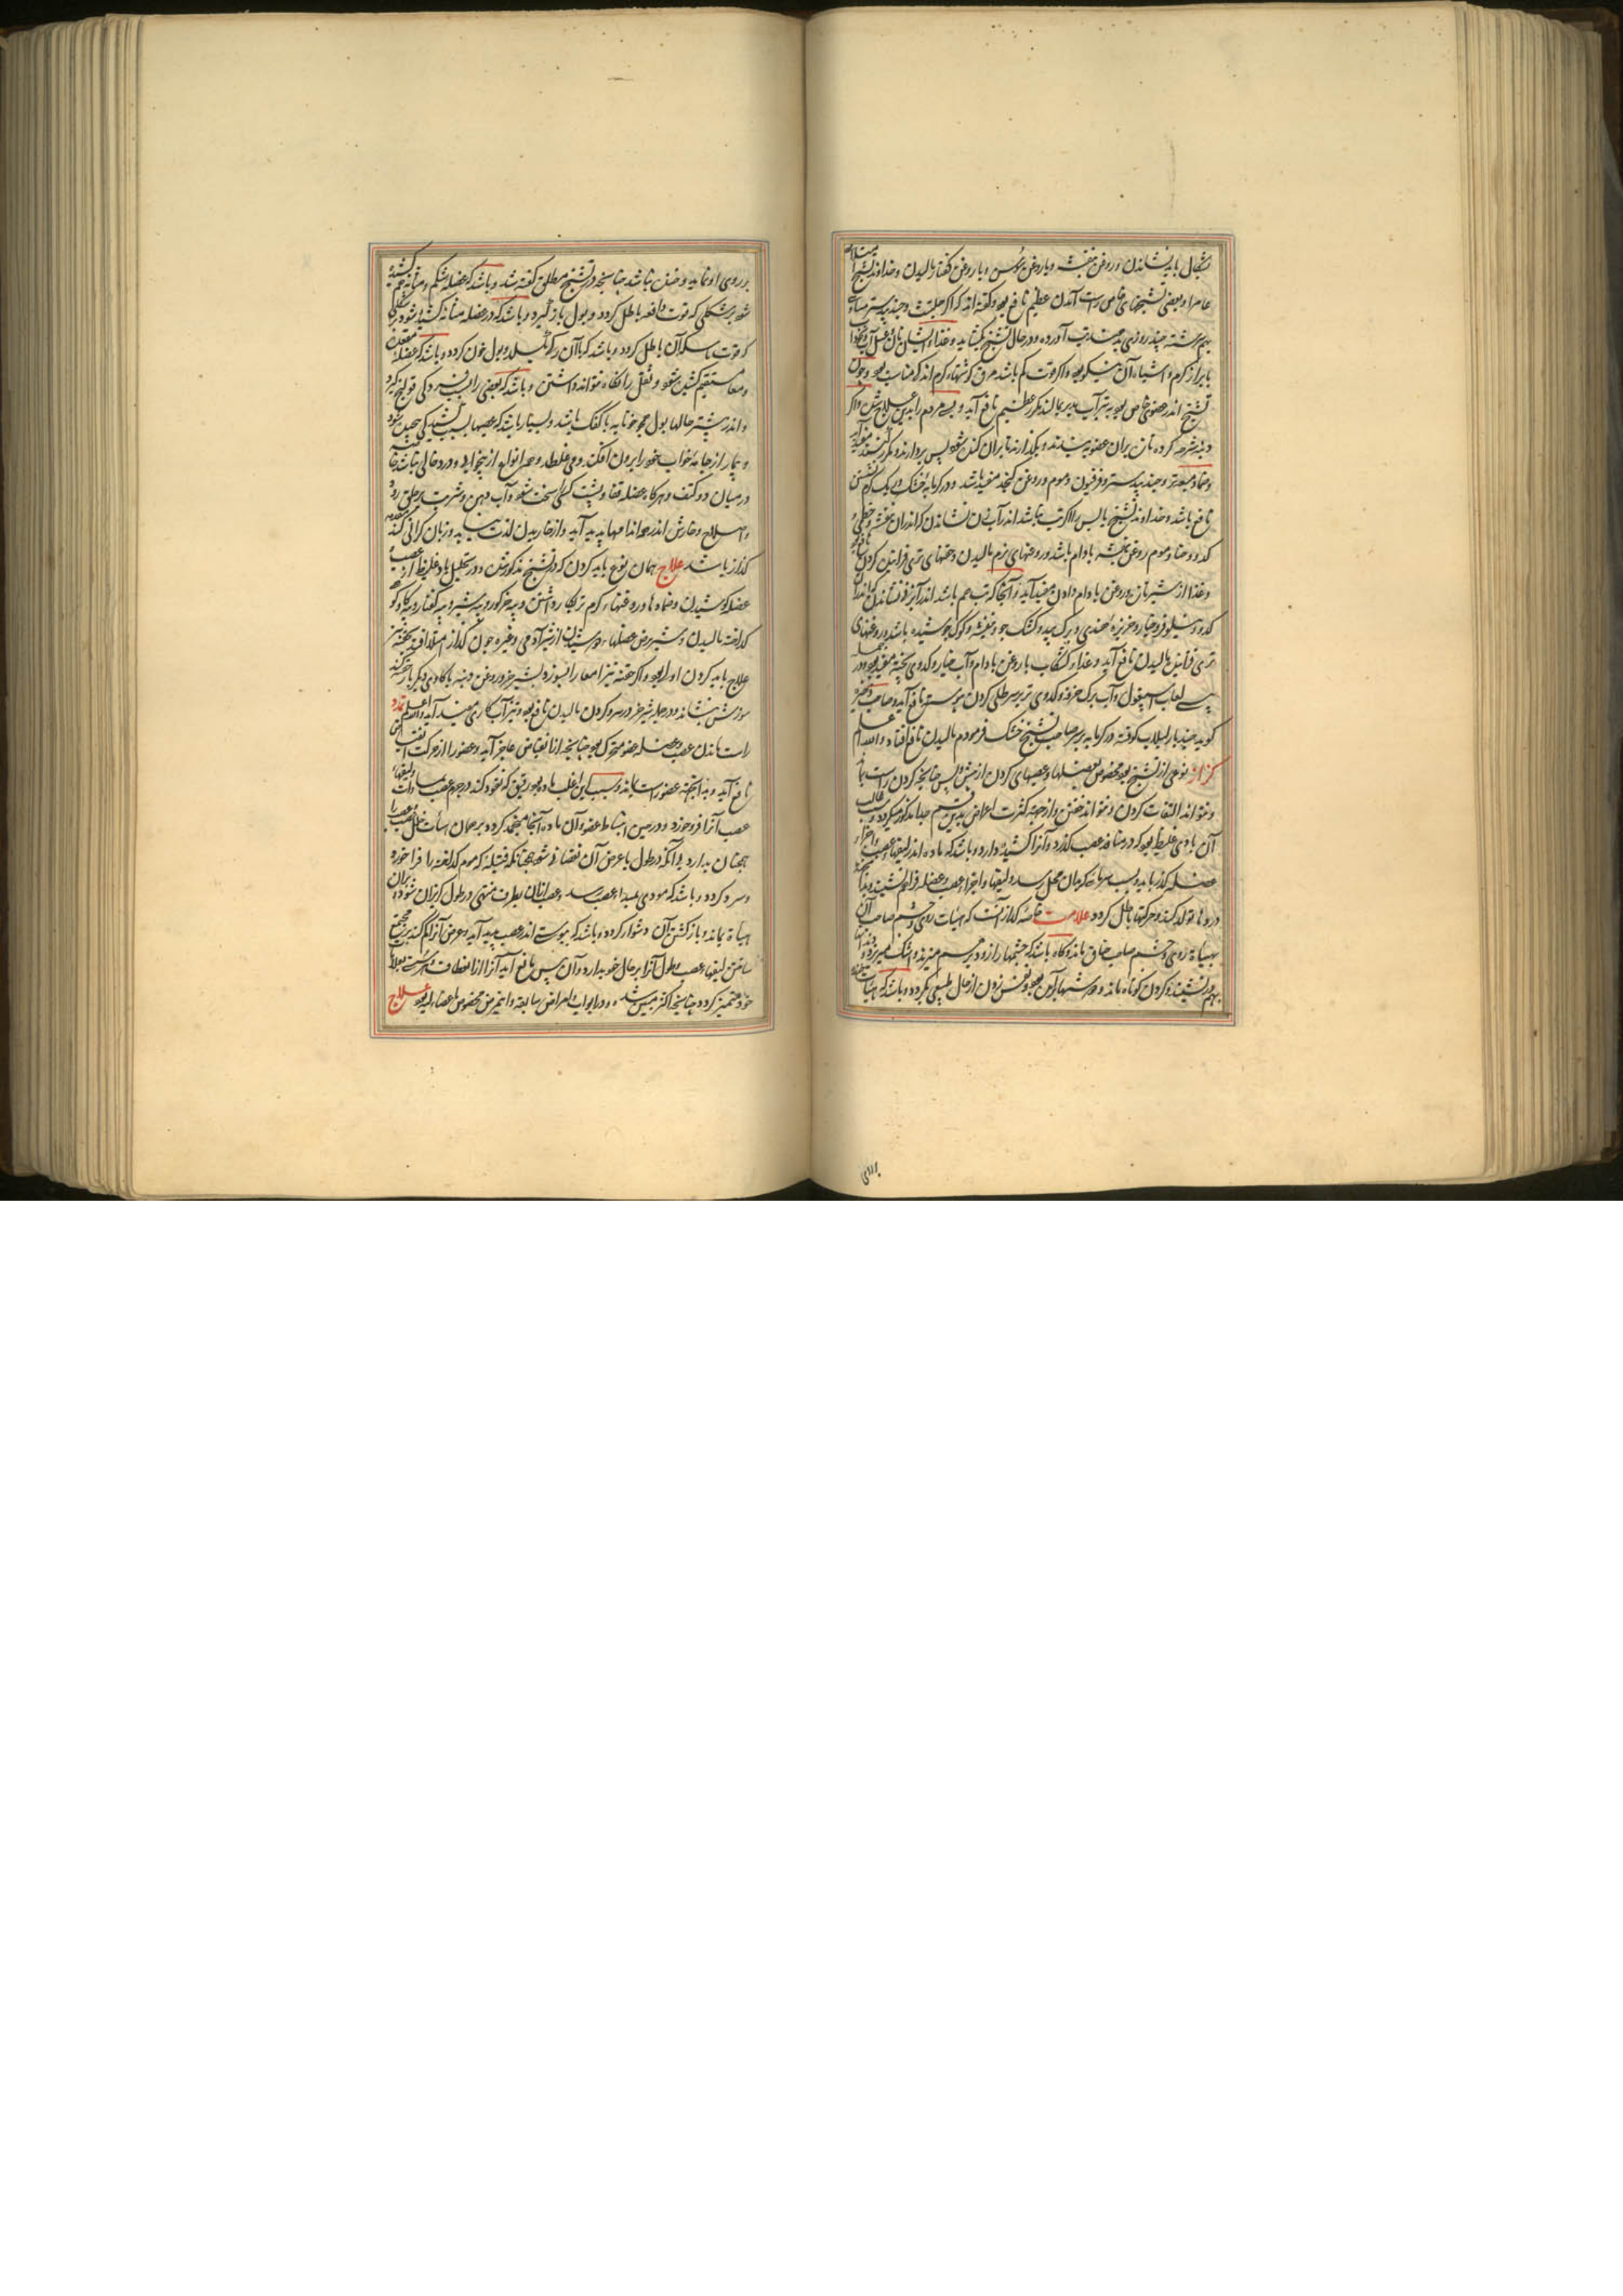 شکال باید نشاندن و روغن بنفشه و یا روغن سوسن و یا روغن کفتار مالیدن و خداوند تشنج
عام را و بعضی تشنجهای خاص راست آمدن عظیم نافع بود و گفته اند که اگر حلتیت و جندبیدستر
بهم سرشته چند روزی تب آورده و در حال تشنج بکشاید و غذاء ایشان نان و عسل
بابزار گرم و اشباه آن نیکو بود و اگر قوت کم باشد مرق گوشتهاء گرم اندکی مناسب بود و چون
تشنج اندر عضوی خاص بود به تیزآب بدبر بمالند مکرر عظیم نافع آید و بسی مردم را بدین علاج
و دنبه شرحه کرده تان بران عضو ببندند و بگذارند تا بران گنده شود پس بردارند و دیگر
و ضماد میعه تر و جندبیدستر و فرفیون و موم و روغن کنجد مفید باشد و در گرمابه خشک و ریگ گرم
نافع باشد و خداوند تشنج یابس را اگر تب نباشد اندر آب زن نشاندن که اندران بنفشه و خطمی و
کدو و حنا و موم روغن بنفشه بادام باشد و روغنهای نرم مالیدن و حقنهای تری فزاینده کردن
و غذا از شیر تازه و روغن بادام دادن مفید آید و آنجا که تب هم باشد اندر آبزن نشاندن که اندران
کدو و نیلوفر و خیار و خربزه هندی و برگ بید و کشک جو و بنفشه و کوک جوشیده باشد و روغنهای
تری فزاینده مالیدن نافع آید و غذا و کشکاب با روغن بادام و آب خیار و کدوی پخته مفید بود و در
لعاب اسپغول و آب برگ خرفه و کدوی تر بر سر طلی کردن پیوسته نافع آید و صاحب ذخیره
گوید چند بار لبلاب کوفته در گرمابه بر سر صاحب تشنج خشک فرمودم مالیدن نافع افتاد والله اعلم
کزاز نوعی از تشنج بود مخصوص بعضلها و عصبهای گردن از پیش و پس چنانچه گردن راست بماند
و نتواند التفات کردن و نتواند خفتن و از جهة کثرت اعراض بدین قسم جدا مذکور میگردد و سبب
آن مادی غلیظ بود که در منافذ عصب گذرد و آنرا کشیده دارد و باشد که ماده اندر لیفها عصب و اجزاء
عضله گذر یابد و بسبب سرمای که بدان محل رسد و لیفها و اجزاء عصب و عضله فراهم نشیند و بدان
دردها تولد کند و حرکتها باطل گردد علامت خاصه کزاز آنست که هیأت روی و چشم صاحب آن
بهیأة روی و چشم صاحب خناق ماند و گاه باشد که چشمها را زود بر هم میزند و اشک میریزد و دندانها
بهم در نشیند و گردن کوتاه ماند و سرشتها گران بود و نفس زدن از حال طبیعی بگردد و باشد که هیأت
بر روی او نماید و خندان نباشد چنانچه در تشنج مطلق گفته شد و باشد که عضله شکم و مثانه هم کشیده
شود بر شکلی که قوت دافعه باطل گردد و بول باز گیرد و باشد که در عضله مثانه کشیده شود بر شکلی
که قوت ماسکه آن باطل گردد و باشد که با آن رگی بگسلد و بول خون گردد و باشد که عضله مقعد
و معاء مستقیم کشیده شود و ثفل را نگاه نتواند داشتن و باشد که بعضی را در فسردگی قولنج گیرد
و اندر بیشتر حالها بول همچو خونابه با کفک باشد و بسیار باشد که عصبها بسبب کشیدگی جهیده شود
و بیمار از جامه خواب خود را بیرون افکند و می غلطد و همه انواع از بیخوابی و درد خالی نباشد خاصه
در میان دو کتف و هرگاه عضله قفا و پشت کشیده سخت شود آب دهن و شربت بر حلق رود
و اختلاج و خارش اندر همه اندامها پدید آید و از خاریدن لذت نیابد و زبان گرانی کند
کزاز باشد علاج همان نوع باید کردن که در تشنج مذکور شد و در تحلیل باد غلیظ از عصب و
عضله کوشیدن و ضمادها و روغنها گرم تر بکار داشتن و پیه خرگور و پیه شیر و پیه کفتار و پیه گاو کوهی
گداخته مالیدن و شیر بر عضلها دوشیدن از شیر آدمی و غیره و چون کزاز از امتلا افتد بحقنه تیز
علاج باید کردن او را بود و اگر حقنه تیز امعا را بسوزد بشیر خر و روغن دنبه یا گاو دمی دیگر باز حقنه کند
سوزش بنشاند و در جایی شیر خر در سر و گردن مالیدن نافع بود و تیزآب کاری مفید آید والله اعلم تمدد
راست ماندن عصب و عضله عضو متحرک بود چنانچه از انقباض عاجز آید و عضو را از حرکت
مانع آید و بدانجهته عضو راست بماند و سبب این اغلب ماده بود رقیق که نفوذ کند در جرم عصب و لیفهاء
عصب آنرا فرو خورد و در حین انبساط عضو آن ماده آنجا منجمد گردد و بر همان هیأت عصب را
همچنان بدارد بی آنکه در طول یا عرض آن نقصانی شود همچنانکه فتیله که موم گداخته را فرا خورد
و سرد گردد و باشد که موذی بمبداء عصب رسد و عصب ازان بطرف منتهی در طول گریزان شود و بران
هیأة بماند و باز کشتن آن دشوار گردد و باشد که یبوست اندر عصب پدید آید و عرض آنرا کم کند بر جمع
ساختن لیفهاء عصب و طول آنرا بر حال خود بدارد و آن یبس مانع آید آنرا از انعطاف
خود متمیز گردد چنانچه اکثر مبین شد و در ابواب امراض سابقه و این مرض مخصوص باعضاء آلیه بود علاج